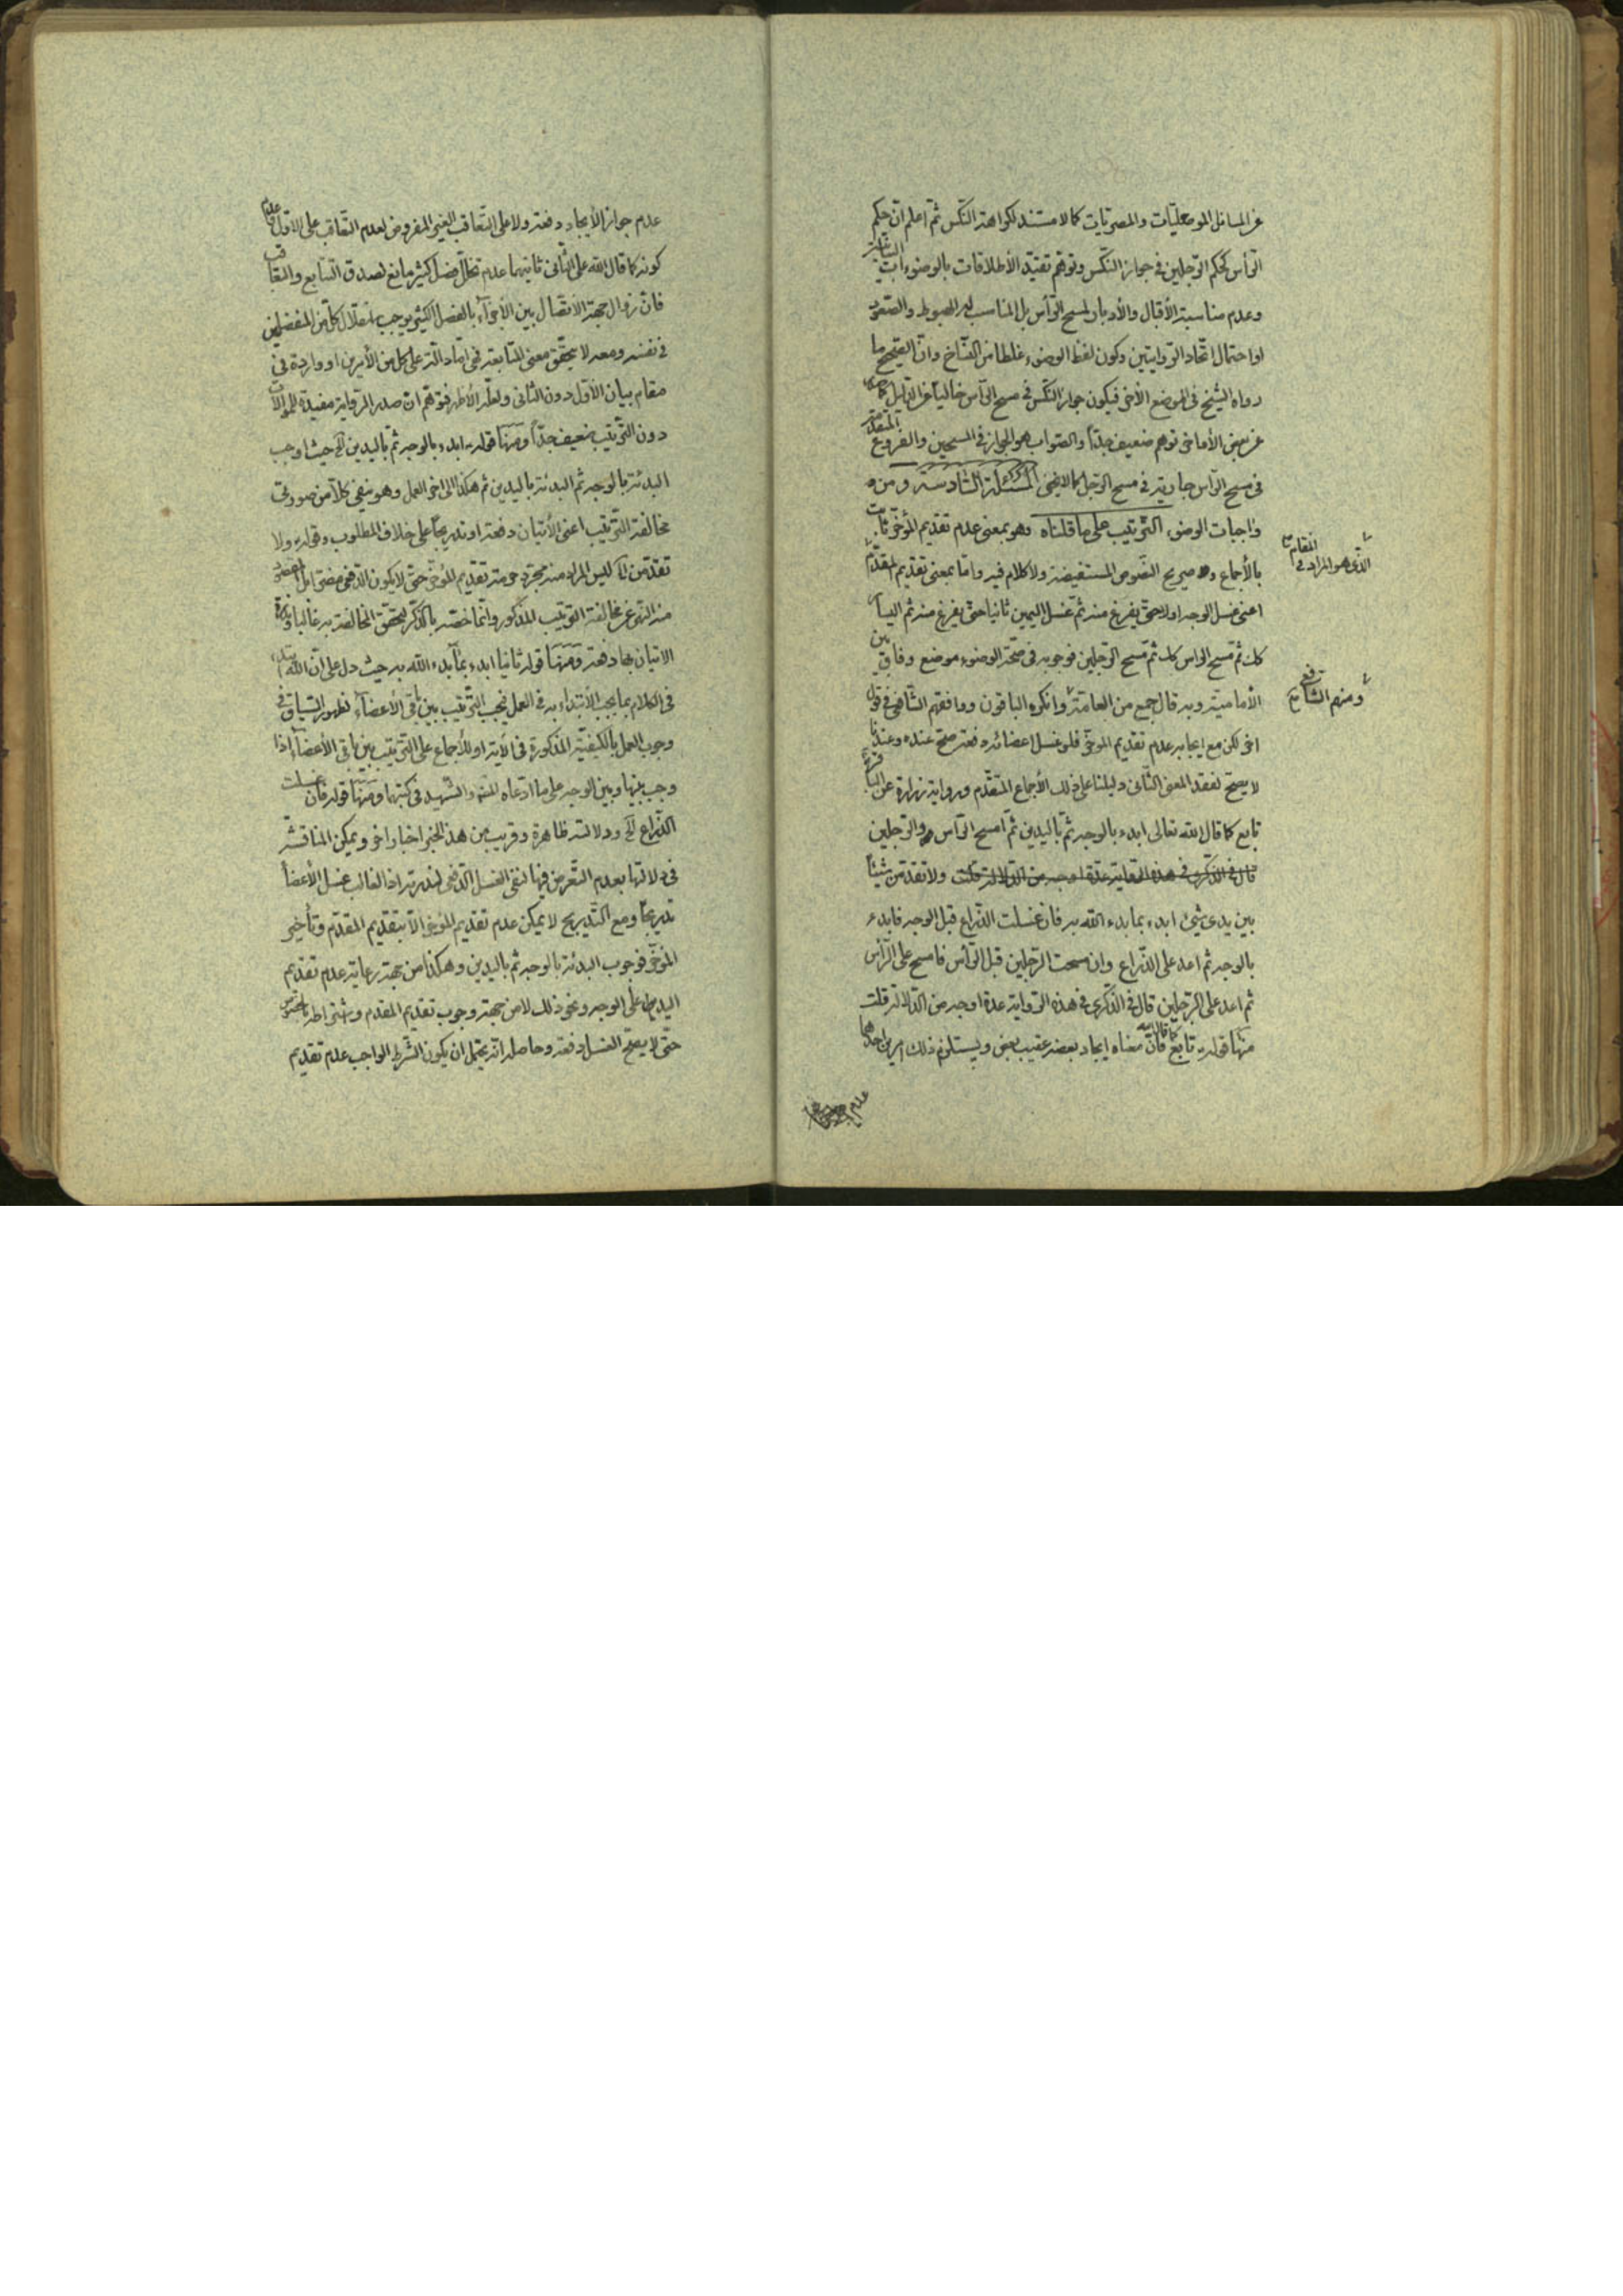 عن المسائل الموصليات والمصريات كما لا مستند لكراهة النكس ثم اعلم ان حكم
الرأس كحكم الرجلين في جواز النكس وتوهم تقييد الأطلاقات بالوضوء
وعدم مناسبة الأقبال والأدبار لمسح الرأس بل المناسب له الهبوط والصعود
او احتمال اتحاد الروايتين وكون لفظ الوضوء غلطا من النساخ وان الصحيح ما
رواه الشيخ في الموضع الأخر فيكون جواز النكس في مسح الرأس خاليا عن الدليل كما
عن بعض الأفاضل توهم ضعيف جدا والصواب هو الجواز في المسحين والفروع المتقدمة
في مسح الرأس جارية في مسح الرجل كما لا يخفى المسئلة السادسة ومن
واجبات الوضوء الترتيب على ما قلناه وهو بمعنى عدم تقديم المؤخر ثابت
بالأجماع وصريح النصوص المستفيضة ولا كلام فيه واما بمعنى تقديم المقدم
الذي هو المراد في المقام
اعنى غسل الوجه اولا حتى يفرغ منه ثم غسل اليمين ثانيا حتى يفرغ منه ثم اليسار
كك ثم مسح الراس كك ثم مسح الرجلين فوجوبه في صحة الوضوء موضع وفاق بين
الأمامية وبه قال جمع من العامة وانكره الباقون ووافقهم الشافعي في قول
ومنهم الشافعي
اخر لكن مع ايجابه عدم تقديم المؤخر فلو غسل اعضائه دفعة صح عنده وعندنا
لا يصح لفقد المعنى الثاني دليلنا على ذلك الأجماع المتقدم ورواية زرارة عن الباقر
تابع كما قال الله تعالى ابدء بالوجه ثم باليدين ثم امسح الرأس والرجلين
قال في الذكرى في هذه الرواية عدة اوجه من الدلالة قلت ولا تقدمن شيئا
بين يدى شيئ ابدء بما بدء الله به فان غسلت الذراع قبل الوجه فابدء
بالوجه ثم اعد على الذراع وان مسحت الرجلين قبل الرأس فامسح على الرأس
ثم اعد على الرجلين قال في الذكرى في هذه الرواية عدة اوجه من الدلالة قلت
منها قوله تابع كما قال الله فان معناه ايجاد بعضه عقيب بعض ويستلزم ذلك امرين احدهما
عدم
عدم جواز الأيجاد دفعة ولا على التعاقب الغير المفروض لعدم التعاقب على الاول وعدم
كونه كما قال الله على الثاني ثانيهما عدم تخلل فصل كثير مانع لصدق التتابع والتعاقب
فان زوال جهة الاتصال بين الأجزاء بالفصل الكثير يوجب استقلال كل من المنفصلين
في نفسه ومعه لا يتحقق معنى المتابعة فهى اما دالة على كل من الأمرين او واردة في
مقام بيان الأول دون الثاني ولعله الأظهر فتوهم ان صدر الرواية مفيدة للموالات
دون الترتيب ضعيف جدا ومنها قوله ابدء بالوجه ثم باليدين الخ حيث اوجب
البدئة بالوجه ثم البدئة باليدين ثم هكذا الى اخر العمل وهو ينفى كلا من صورتى
مخالفة الترتيب اعنى الأتيان دفعة او تدريجا على خلاف المطلوب وقوله ولا
تقدمن الخ ليس المراد منه مجرد حرمة تقديم المؤخر حتى لا يكون الدفعى مضرا بل المقصود
منه النهى عن مخالفة الترتيب المذكور وانما خصه بالذكر لتحقق المخالفة به غالبا وندرة
الاتيان بها دفعة ومنها قوله ثانيا ابدء بما بدء الله به حيث دل على ان الله ابتدء
في الكلام بما يجب الأبتداء به في العمل فيجب الترتيب بين باقى الأعضاء لظهور السياق في
وجوب العمل بالكيفية المذكورة في الأية او للأجماع على الترتيب بين باقي الأعضاء اذا
وجب بينها وبين الوجه على ما ادعاه الشهيد في كتبها ومنها قوله فان غسلت
الذراع الخ ودلالته ظاهرة وقريب من هذا الخبر اخبار اخر ويمكن المناقشة
في دلالتها بعدم التعرض فيها لنفى الغسل الدفعى لندرته اذ الغالب غسل الأعضاء
تدريجا ومع التدريج لا يمكن عدم تقديم المؤخر الا بتقديم المقدم وتأخير
المؤخر فوجوب البدئة بالوجه ثم باليدين وهكذا من جهة رعاية عدم تقديم
اليد على الوجه ونحو ذلك لا من جهة وجوب تقديم المقدم واشتراطه بالخصوص
حتى لا يصح الغسل دفعة وحاصله انه يحتمل ان يكون الشرط الواجب عدم تقديم